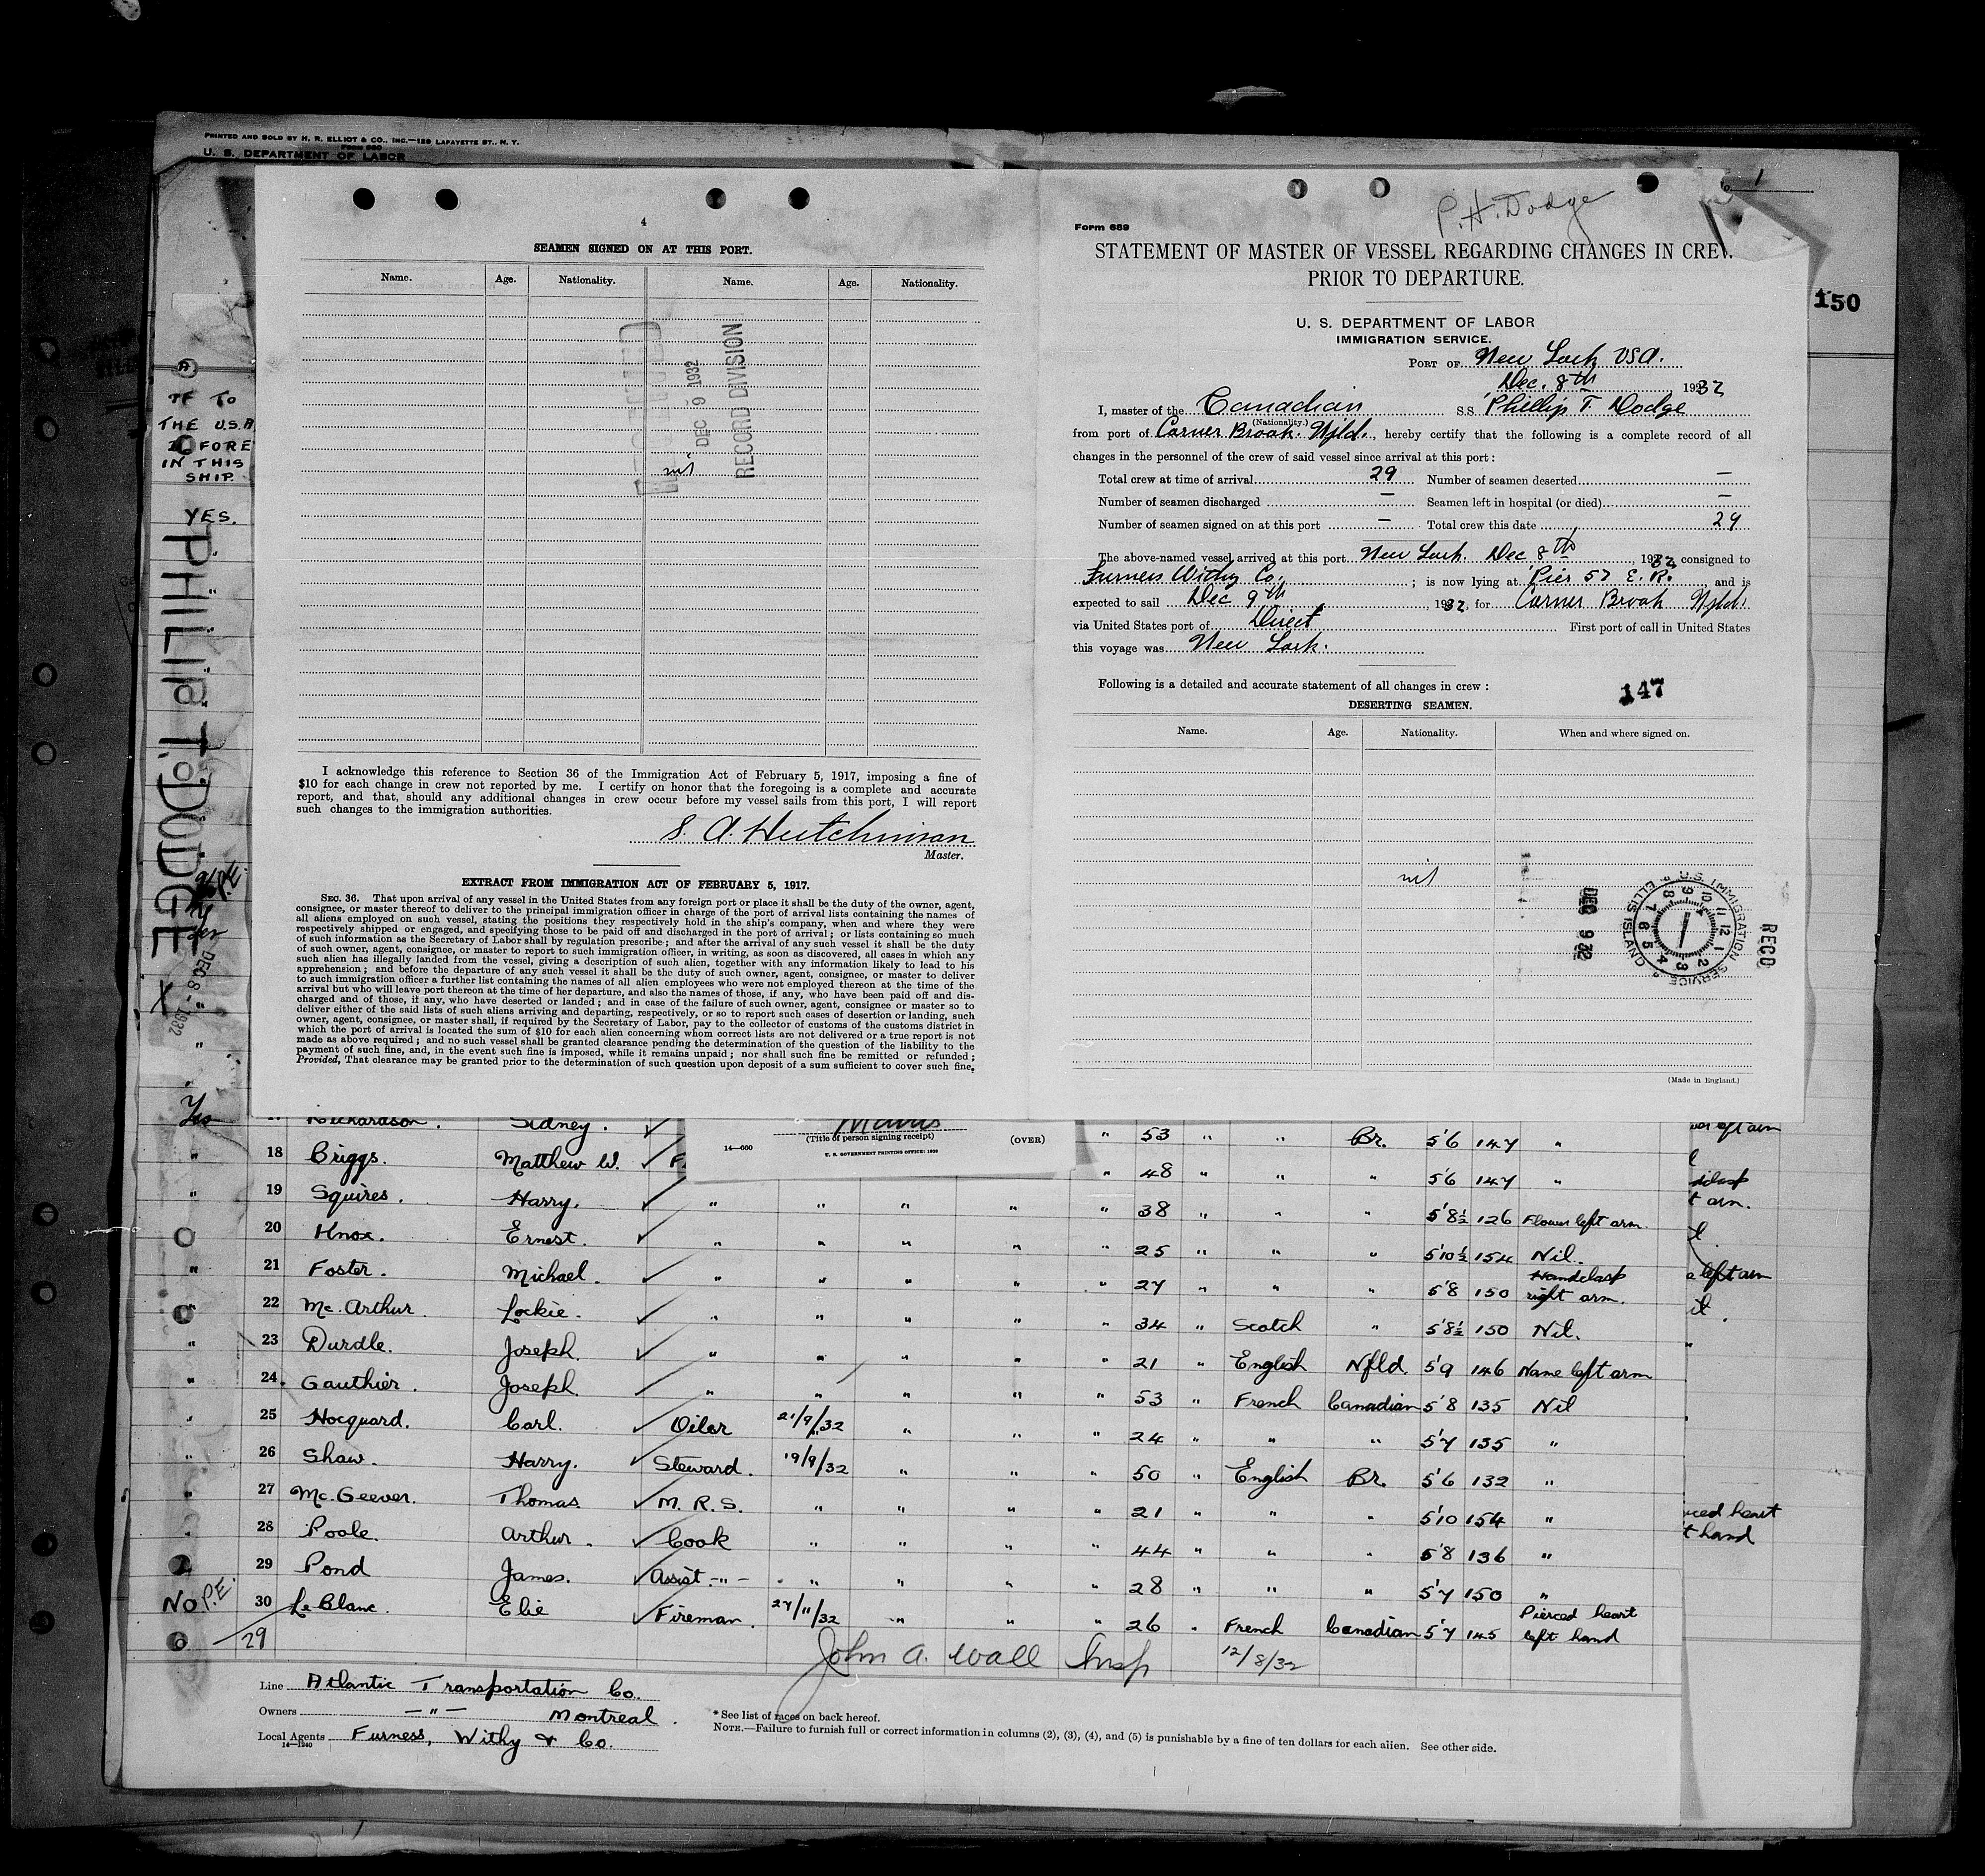 PRINTED AND SOLD BY H. R. ELLIOT & CO., INC.—129 LAFAYETTE ST., N. Y.
Form 680
U. S. DEPARTMENT OF LABOR
TO
THE U.S.A
BEFORE
IN THIS
SHIP.
YES.
PHILIP T. DODGE
DEC 8 - 1932
X
Yes
4
SEAMEN SIGNED ON AT THIS PORT.
Name. Age. Nationality. Name. Age. Nationality.
DEC 9 1932
RECORD DIVISION
nil
I acknowledge this reference to Section 36 of the Immigration Act of February 5, 1917, imposing a fine of
$10 for each change in crew not reported by me. I certify on honor that the foregoing is a complete and accurate
report, and that, should any additional changes in crew occur before my vessel sails from this port, I will report
such changes to the immigration authorities.
S. A. Hutchinson
Master.
EXTRACT FROM IMMIGRATION ACT OF FEBRUARY 5, 1917.
SEC. 36. That upon arrival of any vessel in the United States from any foreign port or place it shall be the duty of the owner, agent,
consignee, or master thereof to deliver to the principal immigration officer in charge of the port of arrival lists containing the names of
all aliens employed on such vessel, stating the positions they respectively hold in the ship's company, when and where they were
respectively shipped or engaged, and specifying those to be paid off and discharged in the port of arrival; or lists containing so much
of such information as the Secretary of Labor shall by regulation prescribe; and after the arrival of any such vessel it shall be the duty
of such owner, agent, consignee, or master to report to such immigration officer, in writing, as soon as discovered, all cases in which any
such alien has illegally landed from the vessel, giving a description of such alien, together with any information likely to lead to his
apprehension; and before the departure of any such vessel it shall be the duty of such owner, agent, consignee, or master to deliver
to such immigration officer a further list containing the names of all alien employees who were not employed thereon at the time of the
arrival but who will leave port thereon at the time of her departure, and also the names of those, if any, who have been paid off and dis-
charged and of those, if any, who have deserted or landed; and in case of the failure of such owner, agent, consignee or master so to
deliver either of the said lists of such aliens arriving and departing, respectively, or so to report such cases of desertion or landing, such
owner, agent, consignee, or master shall, if required by the Secretary of Labor, pay to the collector of customs of the customs district in
which the port of arrival is located the sum of $10 for each alien concerning whom correct lists are not delivered or a true report is not
made as above required; and no such vessel shall be granted clearance pending the determination of the question of the liability to the
payment of such fine, and, in the event such fine is imposed, while it remains unpaid; nor shall such fine be remitted or refunded;
Provided, That clearance may be granted prior to the determination of such question upon deposit of a sum sufficient to cover such fine,
P. H. Dodge
1
Form 689
STATEMENT OF MASTER OF VESSEL REGARDING CHANGES IN CREW
PRIOR TO DEPARTURE.
150
U. S. DEPARTMENT OF LABOR
IMMIGRATION SERVICE.
PORT OF New York USA.
Dec. 8th 1932
I, master of the Canadian S.S. Phillip T. Dodge
(Nationality.)
from port of Corner Brook. Nfld., hereby certify that the following is a complete record of all
changes in the personnel of the crew of said vessel since arrival at this port:
Total crew at time of arrival 29 Number of seamen deserted —
Number of seamen discharged — Seamen left in hospital (or died) —
Number of seamen signed on at this port — Total crew this date 29
The above-named vessel arrived at this port New York. Dec 8th 1932 consigned to
Furness Withy Co.; is now lying at Pier 57 E. R. and is
expected to sail Dec 9th, 1932, for Corner Brook Nfld.
via United States port of Direct First port of call in United States
this voyage was New York.
Following is a detailed and accurate statement of all changes in crew:
147
DESERTING SEAMEN.
Name. Age. Nationality. When and where signed on.
nil
DEC 9 32
U.S. IMMIGRATION SERVICE ELLIS ISLAND
12 1 2 3 4 5 6 7 8 9 10 11
RECD
(Made in England.)
(Title of person signing receipt) (OVER)
14—660 U. S. GOVERNMENT PRINTING OFFICE: 1926
Richardson. Sidney. ✓ " 53 " " Br. 5'6 147 "
" 18 Briggs. Matthew W. ✓ F. " 48 " " " 5'6 147 "
" 19 Squires. Harry. ✓ " " " " " 38 " " " 5'8½ 126 Flower left arm.
20 Knox. Ernest. ✓ " " " " " 25 " " " 5'10½ 154 Nil.
" 21 Foster. Michael. ✓ " " " " " 27 " " " 5'8 150 Handclasp right arm.
" 22 Mc. Arthur. Lockie. ✓ " " " " " 34 " Scotch " 5'8½ 150 Nil.
" 23 Durdle. Joseph. ✓ " " " " " 21 " English Nfld. 5'9 146 Name left arm
" 24. Gauthier. Joseph. ✓ " " " " " 53 " French Canadian 5'8 135 Nil
" 25 Hocquard. Carl. ✓ Oiler 21/9/32 " " " 24 " " " 5'7 135 "
" 26 Shaw. Harry. ✓ Steward. 19/9/32 " " " 50 " English Br. 5'6 132 "
" 27 Mc. Geever. Thomas. ✓ M. R. S. " " " " 21 " " " 5'10 154 "
" 28 Poole. Arthur. ✓ Cook " " " " 44 " " " 5'8 136 "
29 Pond James. ✓ Assist. -"- " " " " 28 " " " 5'7 150 "
No P.E. 30 Le Blanc. Elie ✓ Fireman. 27/11/32 " " " 26 " French Canadian 5'7 145 Pierced heart left hand
29
John A. Wall Insp 12/8/32
left arm
t arm.
left arm
heart
t hand
Line Atlantic Transportation Co.
Owners —"— Montreal.
Local Agents Furness, Withy & Co.
14—1240
* See list of races on back hereof.
NOTE.—Failure to furnish full or correct information in columns (2), (3), (4), and (5) is punishable by a fine of ten dollars for each alien. See other side.